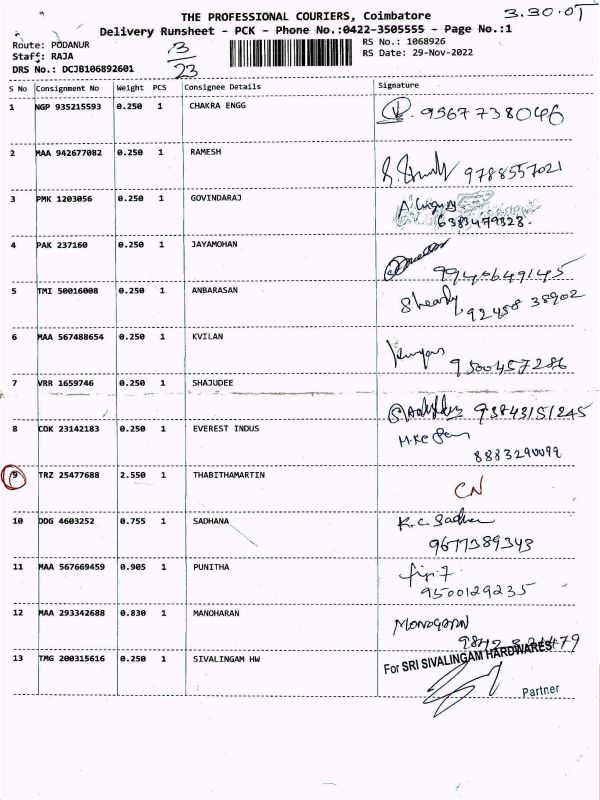 THE PROFESSIONAL COURIERS, Coimbatore
3.30.01
Delivery Runsheet - PCK - Phone No.:0422-3505555 - Page No.:1
Route: PODANUR
Staff: RAJA
DRS No.: DCJB106892601
3/23
RS No.: 1068926
RS Date: 29-Nov-2022
S No Consignment No Weight PCS Consignee Details Signature
1 NGP 935215593 0.250 1 CHAKRA ENGG 9567738046
2 MAA 942677082 0.250 1 RAMESH 9788557021
3 PMK 1203056 0.250 1 GOVINDARAJ
6383479328.
4 PAK 237160 0.250 1 JAYAMOHAN
9946649145
5 TMI 50016008 0.250 1 ANBARASAN 92458 38902
6 MAA 567488654 0.250 1 KVILAN
9500457286
7 VRR 1659746 0.250 1 SHAJUDEE
9384315 1245
8 COK 23142183 0.250 1 EVEREST INDUS
8883290099
9 TRZ 25477688 2.550 1 THABITHAMARTIN
CN
10 DDG 4603252 0.755 1 SADHANA K.C. Sadhan
9677389343
11 MAA 567669459 0.905 1 PUNITHA
9500129235
12 MAA 293342688 0.830 1 MANOHARAN
13 TMG 200315616 0.250 1 SIVALINGAM HW
For SRI SIVALINGAM HARDWARES
Partner